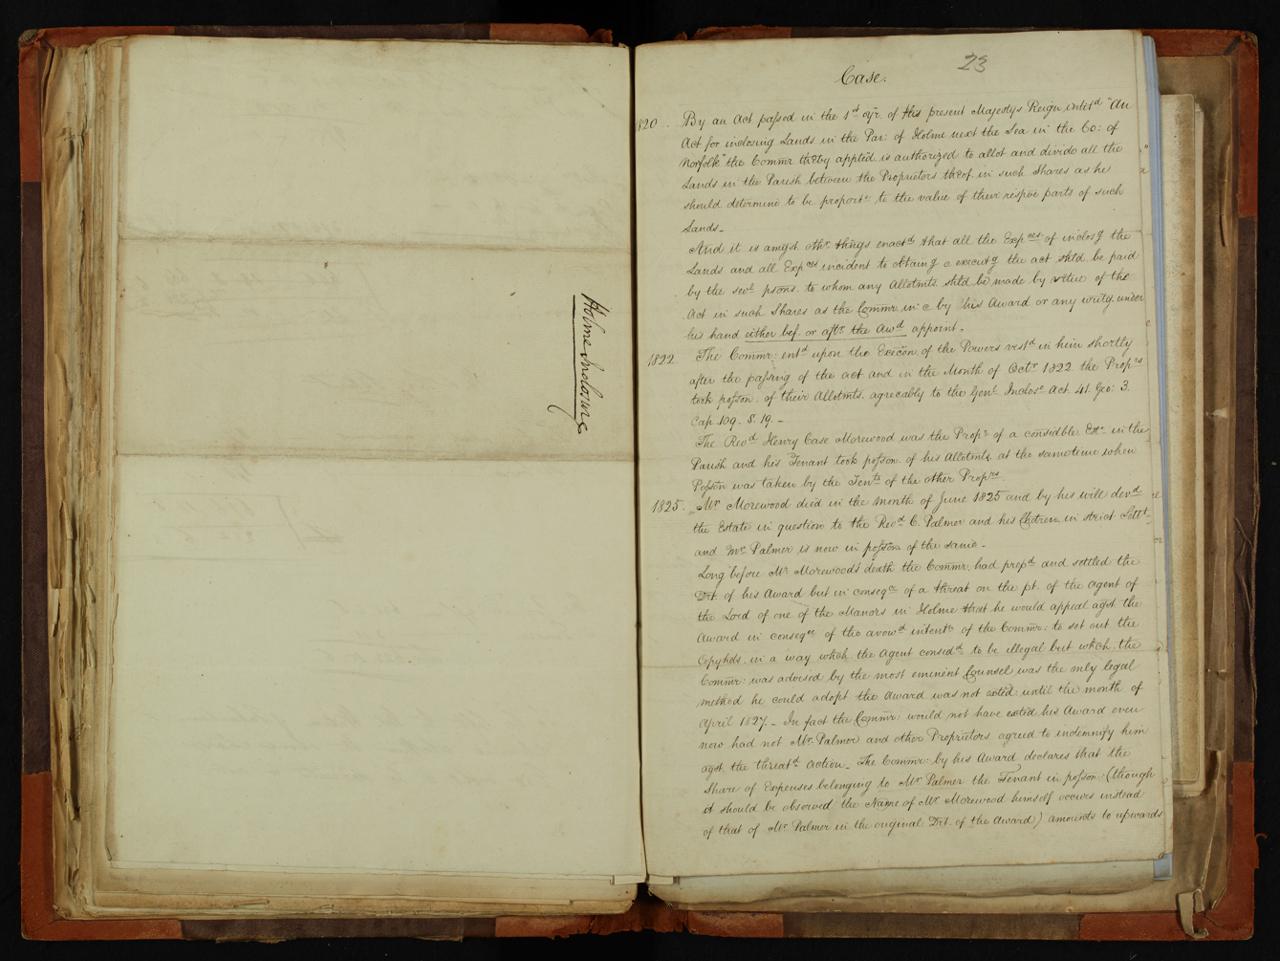 Holme Inclosure
23
Case.
1820. By an Act passed in the 1st yr. of His present Majestys Reign intitd "An
Act for inclosing Lands in the Par: of Holme next the Sea in the Co: of
Norfolk" the Commr thrby applied is authorized to allot and divide all the
Lands in the Parish between the Proprietors throf in such Shares as he
should determine to be proporte to the value of their respive parts of such
Lands.
And it is amgst othr things enactd that all the Expces of inclosg the
Lands and all Expces incident to obtaing & executg the act shld be paid
by the sevl psons to whom any Allotmts shld be made by virtue of the
Act in such Shares as the Commr in & by his Award or any writg under
his hand either bef. or aftr the Awd appoint.
1822 The Commr: entd upon the Execon of the Powers vestd in him shortly
after the passing of the act and in the Month of Octr 1822 the Proprs
took posson. of their Allotmts. agreeably to the Genl Inclose Act. 41. Geo: 3.
Cap. 109. S. 19.
The Revd Henry Case Morewood was the Propr of a considble Este in the
Parish and his Tenant took posson. of his Allotmts at the same time when
Posson was taken by the Tents of the other Proprs
1825. Mr Morewood died in the month of June 1825 and by his will devd
the Estate in question to the Revd C. Palmer and his Children in strict Settt
and Mr Palmer is now in posson of the same.
Long before Mr Morewood's death the Commr. had prepd and settled the
Dft. of his Award but in conseqce of a threat on the pt. of the Agent of
the Lord of one of the Manors in Holme that he would appeal agst the
Award in conseqce of the avowd intentn of the Commr: to set out the
Copyhds. in a way which the Agent consedd to be illegal but which the
Commr: was advised by the most eminent Counsel was the only legal
method he could adopt the Award was not exted until the month of
April 1827. In fact the Commr: would not have exted his Award even
now had not Mr. Palmer and other Proprietors agreed to indemnify him
agst the threatd action. The Commr: by his Award declares that the
Share of Expenses belonging to Mr Palmer the Tenant in posson (though
it should be observed the Name of Mr. Morewood himself occurs instead
of that of Mr. Palmer in the original Dft. of the Award) amounts to upwards